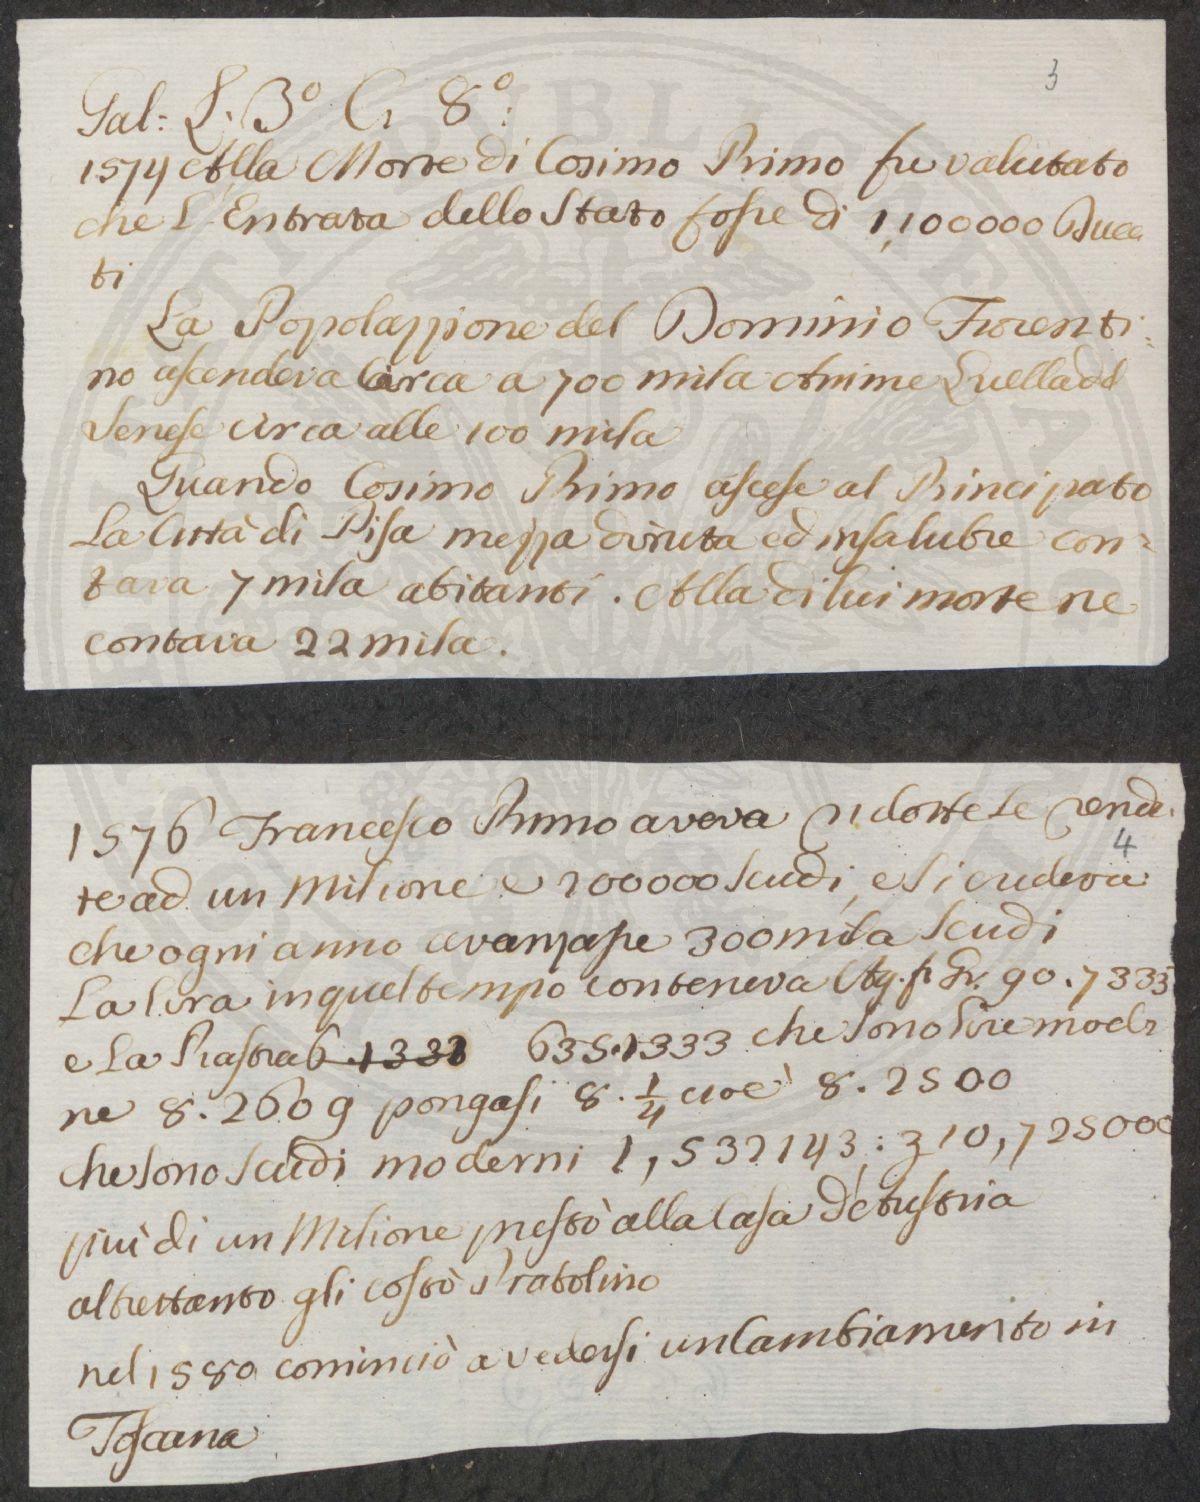 3
Gal: L. 3º C. 8º:
1574 Alla Morte di Cosimo Primo fu valutato
che l'Entrata dello Stato fosse di 1,100000 Duca
ti
La Popolazzione del Dominio Fiorenti:
no ascendeva Circa a 700 mila Anime Quella del
Senese circa alle 100 mila
Quando Cosimo Primo ascese al Principato
La Città di Pisa mezza diruta ed insalubre con:
tava 7 mila abitanti. Alla di lui morte ne
contava 22 mila.
1576 Francesco Primo aveva ridotte le rendi
4
te ad un Milione e 200000 Scudi, e si credeva
che ogni anno avanzasse 300 mila Scudi
La lira in quel tempo conteneva Ag. f. Gr. 90.7333
e La Piastra 6 1333 635.1333 che sono lire moder
ne 8.2609 pongasi 8.1/4 cioè 8.2500
che sono scudi moderni 1,532143: 310,725000
più di un Milione prestò alla Casa d'Austria
altrettanto gli costò Pratolino
nel 1580 cominciò a vedersi un Cambiamento in
Toscana